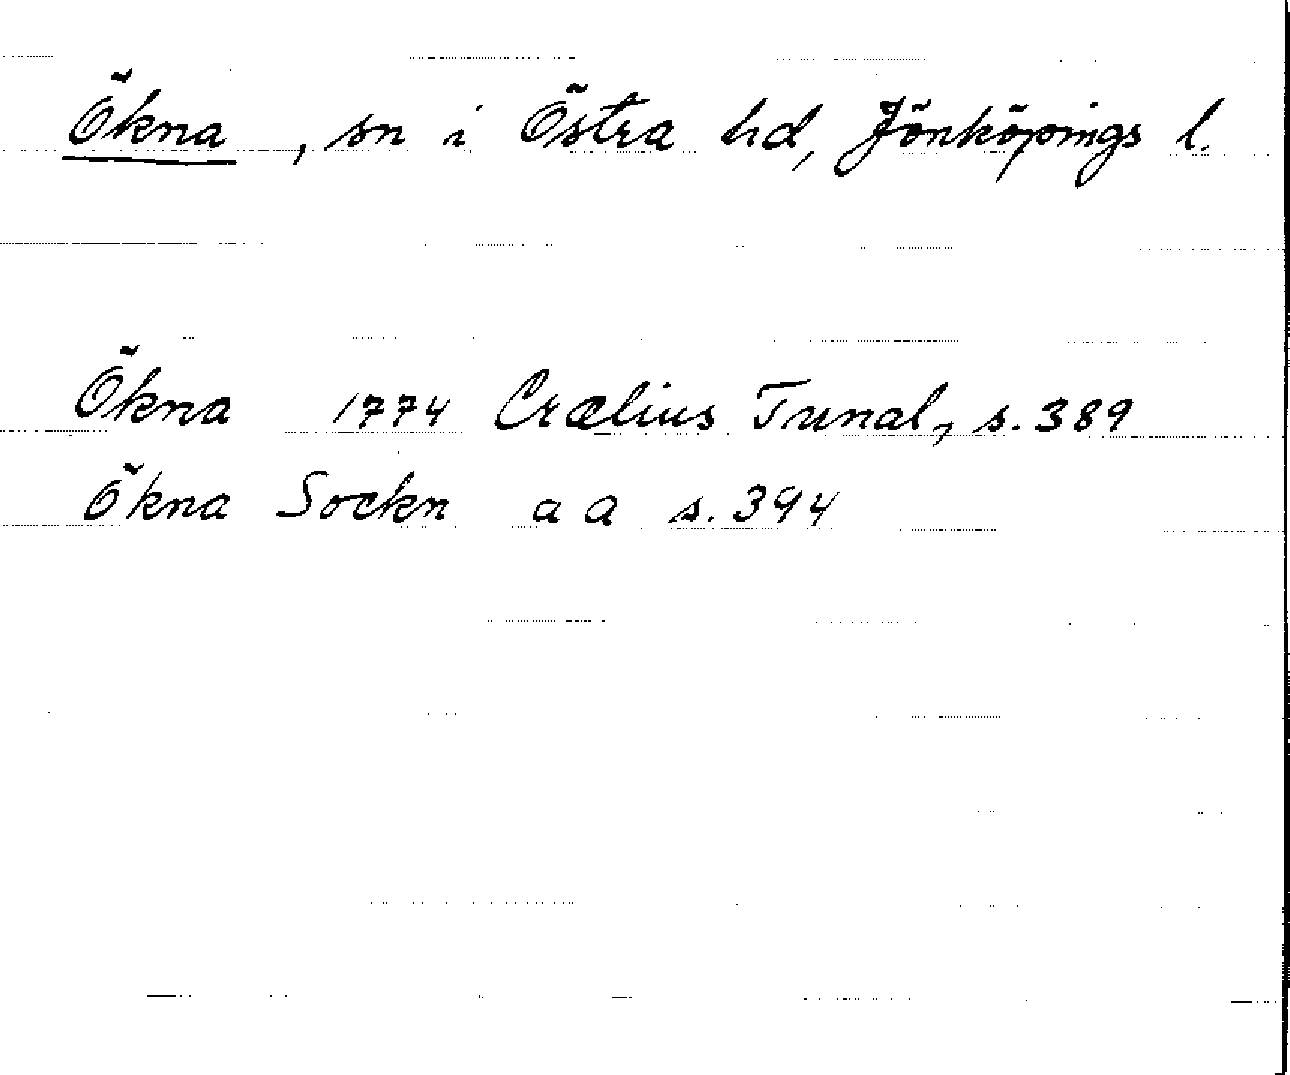 Ökna, sn i Östra hd, Jönköpings l.
Ökna 1774 Crælius Tunal, s. 389
Ökna Sockn a a s. 394